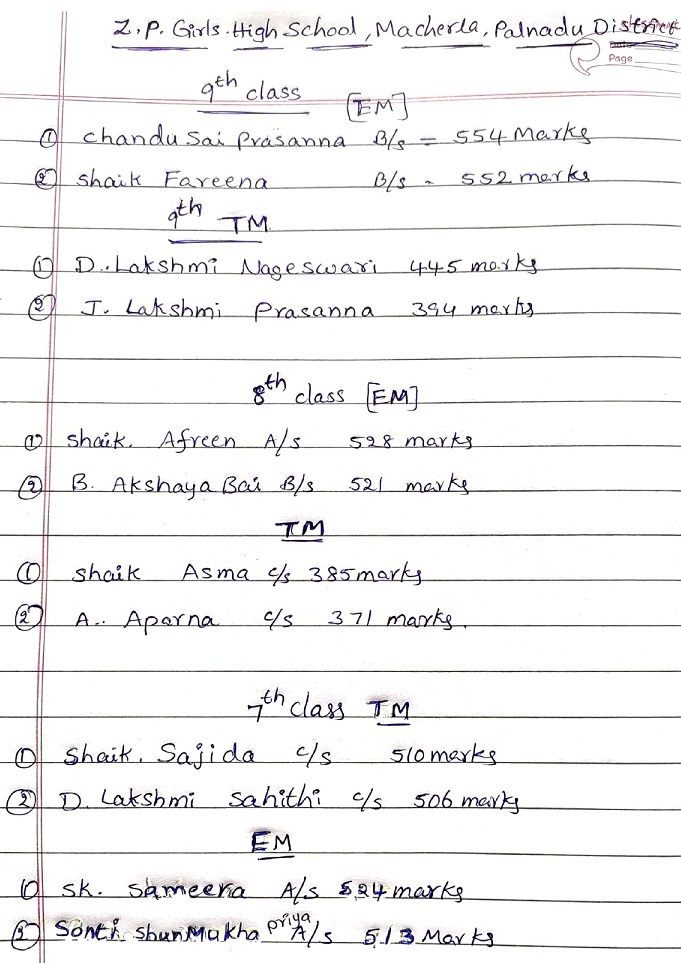 Z.P. Girls High School, Macherla, Palnadu District
Page
9th class [EM]
① Chandu Sai Prasanna B/s = 554 Marks
② Shaik Fareena B/s - 552 marks
9th TM
① D. Lakshmi Nageswari 445 marks
② J. Lakshmi Prasanna 394 marks
8th class [EM]
① Shaik. Afreen A/s 528 marks
② B. Akshaya Bai B/s 521 marks
TM
① Shaik Asma c/s 385 marks
② A.. Aparna c/s 371 marks.
7th class TM
① Shaik. Sajida c/s 510 marks
② D. Lakshmi Sahithi c/s 506 marks
EM
① SK. Sameera A/s 524 marks
② Sonti Shunmukha priya A/s 513 Marks